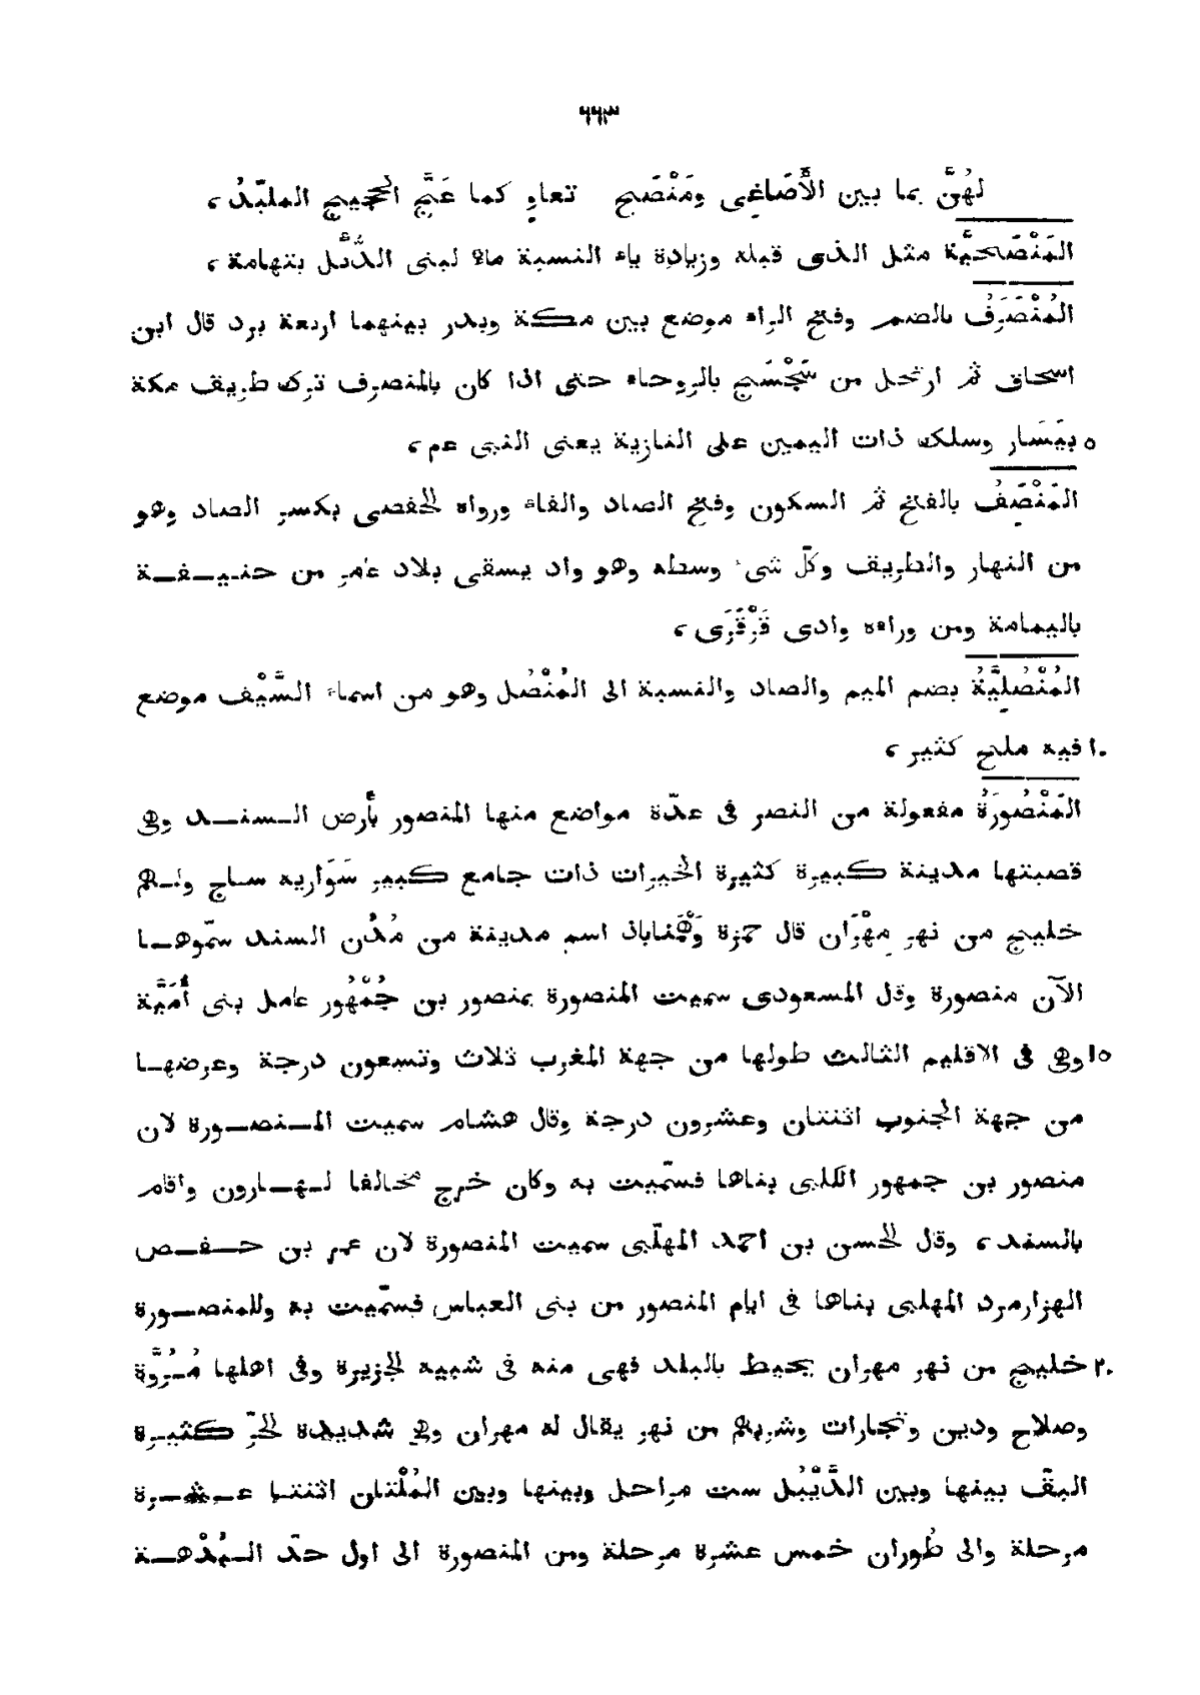 ٦٦٣
لهُنَّ بما بين الأَصَاغِى ومَنْصَح تعاوٍ كما عَجَّ الحَجِيج الملبّدُ ،
المَنْصَحيَّة مثل الذى قبله وزيادة ياء النسبة ماء لبنى الدُّئَل بتهامة ،
المُنْصَرَفُ بالضم وفتح الراء موضع بين مكة وبدر بينهما اربعة برد قال ابن
اسحاق ثم ارتحل من سَجْسَج بالروحاء حتى اذا كان بالمنصرف ترك طريق مكة
٥ بيَسَار وسلك ذات اليمين على النازية يعنى النبى عم ،
المَنْصَفُ بالفتح ثم السكون وفتح الصاد والفاء ورواه الحفصى بكسر الصاد وهو
من النهار والطريق وكلّ شىء وسطه وهو واد يسقى بلاد عامر من حنيفة
باليمامة ومن وراءه وادى قَرْقَرَى ،
المُنْصُلِيَّةُ بضم الميم والصاد والنسبة الى المُنْصُل وهو من اسماء السَّيْف موضع
١٠ فيه ملح كثير ،
المَنْصُورَةُ مفعولة من النصر فى عدّة مواضع منها المنصور بأَرض السند وهى
قصبتها مدينة كبيرة كثيرة الخيرات ذات جامع كبير سَوَاريه ساج ولهم
خليج من نهر مِهْرَان قال حمزة وَهْمَناباذ اسم مدينة من مُدُن السند سمّوها
الآن منصورة وقال المسعودى سميت المنصورة بمنصور بن جُمْهُور عامل بنى أُمَيَّة
١٥ وهى فى الاقليم الثالث طولها من جهة المغرب ثلاث وتسعون درجة وعرضها
من جهة الجنوب اثنتان وعشرون درجة وقال هشام سميت المنصورة لان
منصور بن جمهور الكلبى بناها فسمّيت به وكان خرج مخالفا لهارون واقام
بالسند ، وقال الحسن بن احمد المهلّبى سميت المنصورة لان عمر بن حفص
الهزارمرد المهلبى بناها فى ايام المنصور من بنى العباس فسمّيت به وللمنصورة
٢٠ خليج من نهر مهران يحيط بالبلد فهى منه فى شبيه الجزيرة وفى اهلها مُرُوَّة
وصلاح ودين وتجارات وشربهم من نهر يقال له مهران وهى شديدة الحرّ كثيرة
البقّ بينها وبين الدَّيْبُل ست مراحل وبينها وبين المُلْتان اثنتا عشرة
مرحلة والى طُوران خمس عشرة مرحلة ومن المنصورة الى اول حدّ البُدْهة